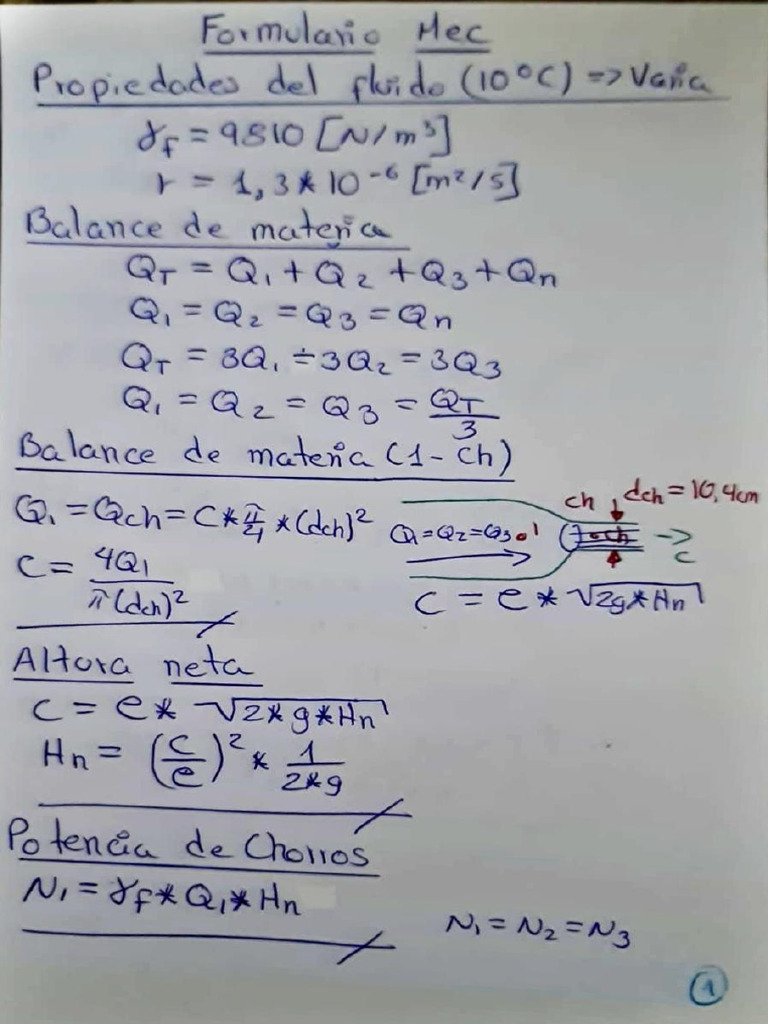 Formulario Mec
Propiedades del fluido (10°C) => Varia
γf = 9810 [N/m³]
r = 1,3*10⁻⁶ [m²/s]
Balance de materia
QT = Q1 + Q2 + Q3 + Qn
Q1 = Q2 = Q3 = Qn
QT = 3Q1 ÷ 3Q2 = 3Q3
Q1 = Q2 = Q3 = QT/3
Balance de materia (1 - ch)
Q1 = Qch = C * π/4 * (dch)²
C = 4Q1/π(dch)²
ch dch = 10,4cm
Q1 = Q2 = Q3
ch
c
C = e * √2g*Hn
Altura neta
C = e * √2*g*Hn
Hn = (C/e)² * 1/2*g
Potencia de Chorros
N1 = γf * Q1 * Hn
N1 = N2 = N3
1